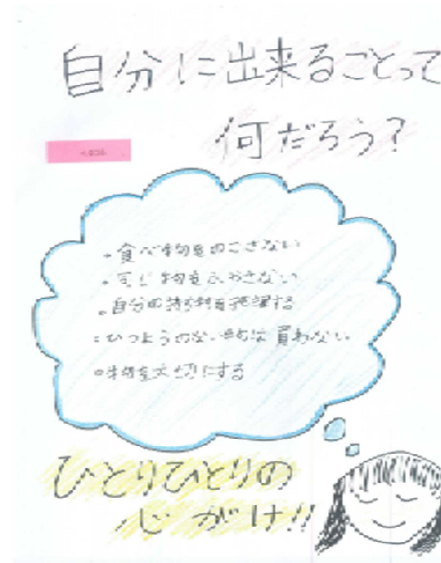 自分に出来ることって
何だろう?
・食べ物をのこさない
・同じ物をふやさない
・自分の持ち物を把握する
・ひつようのない物は買わない
・物を大切にする
ひとりひとりの
心がけ!!